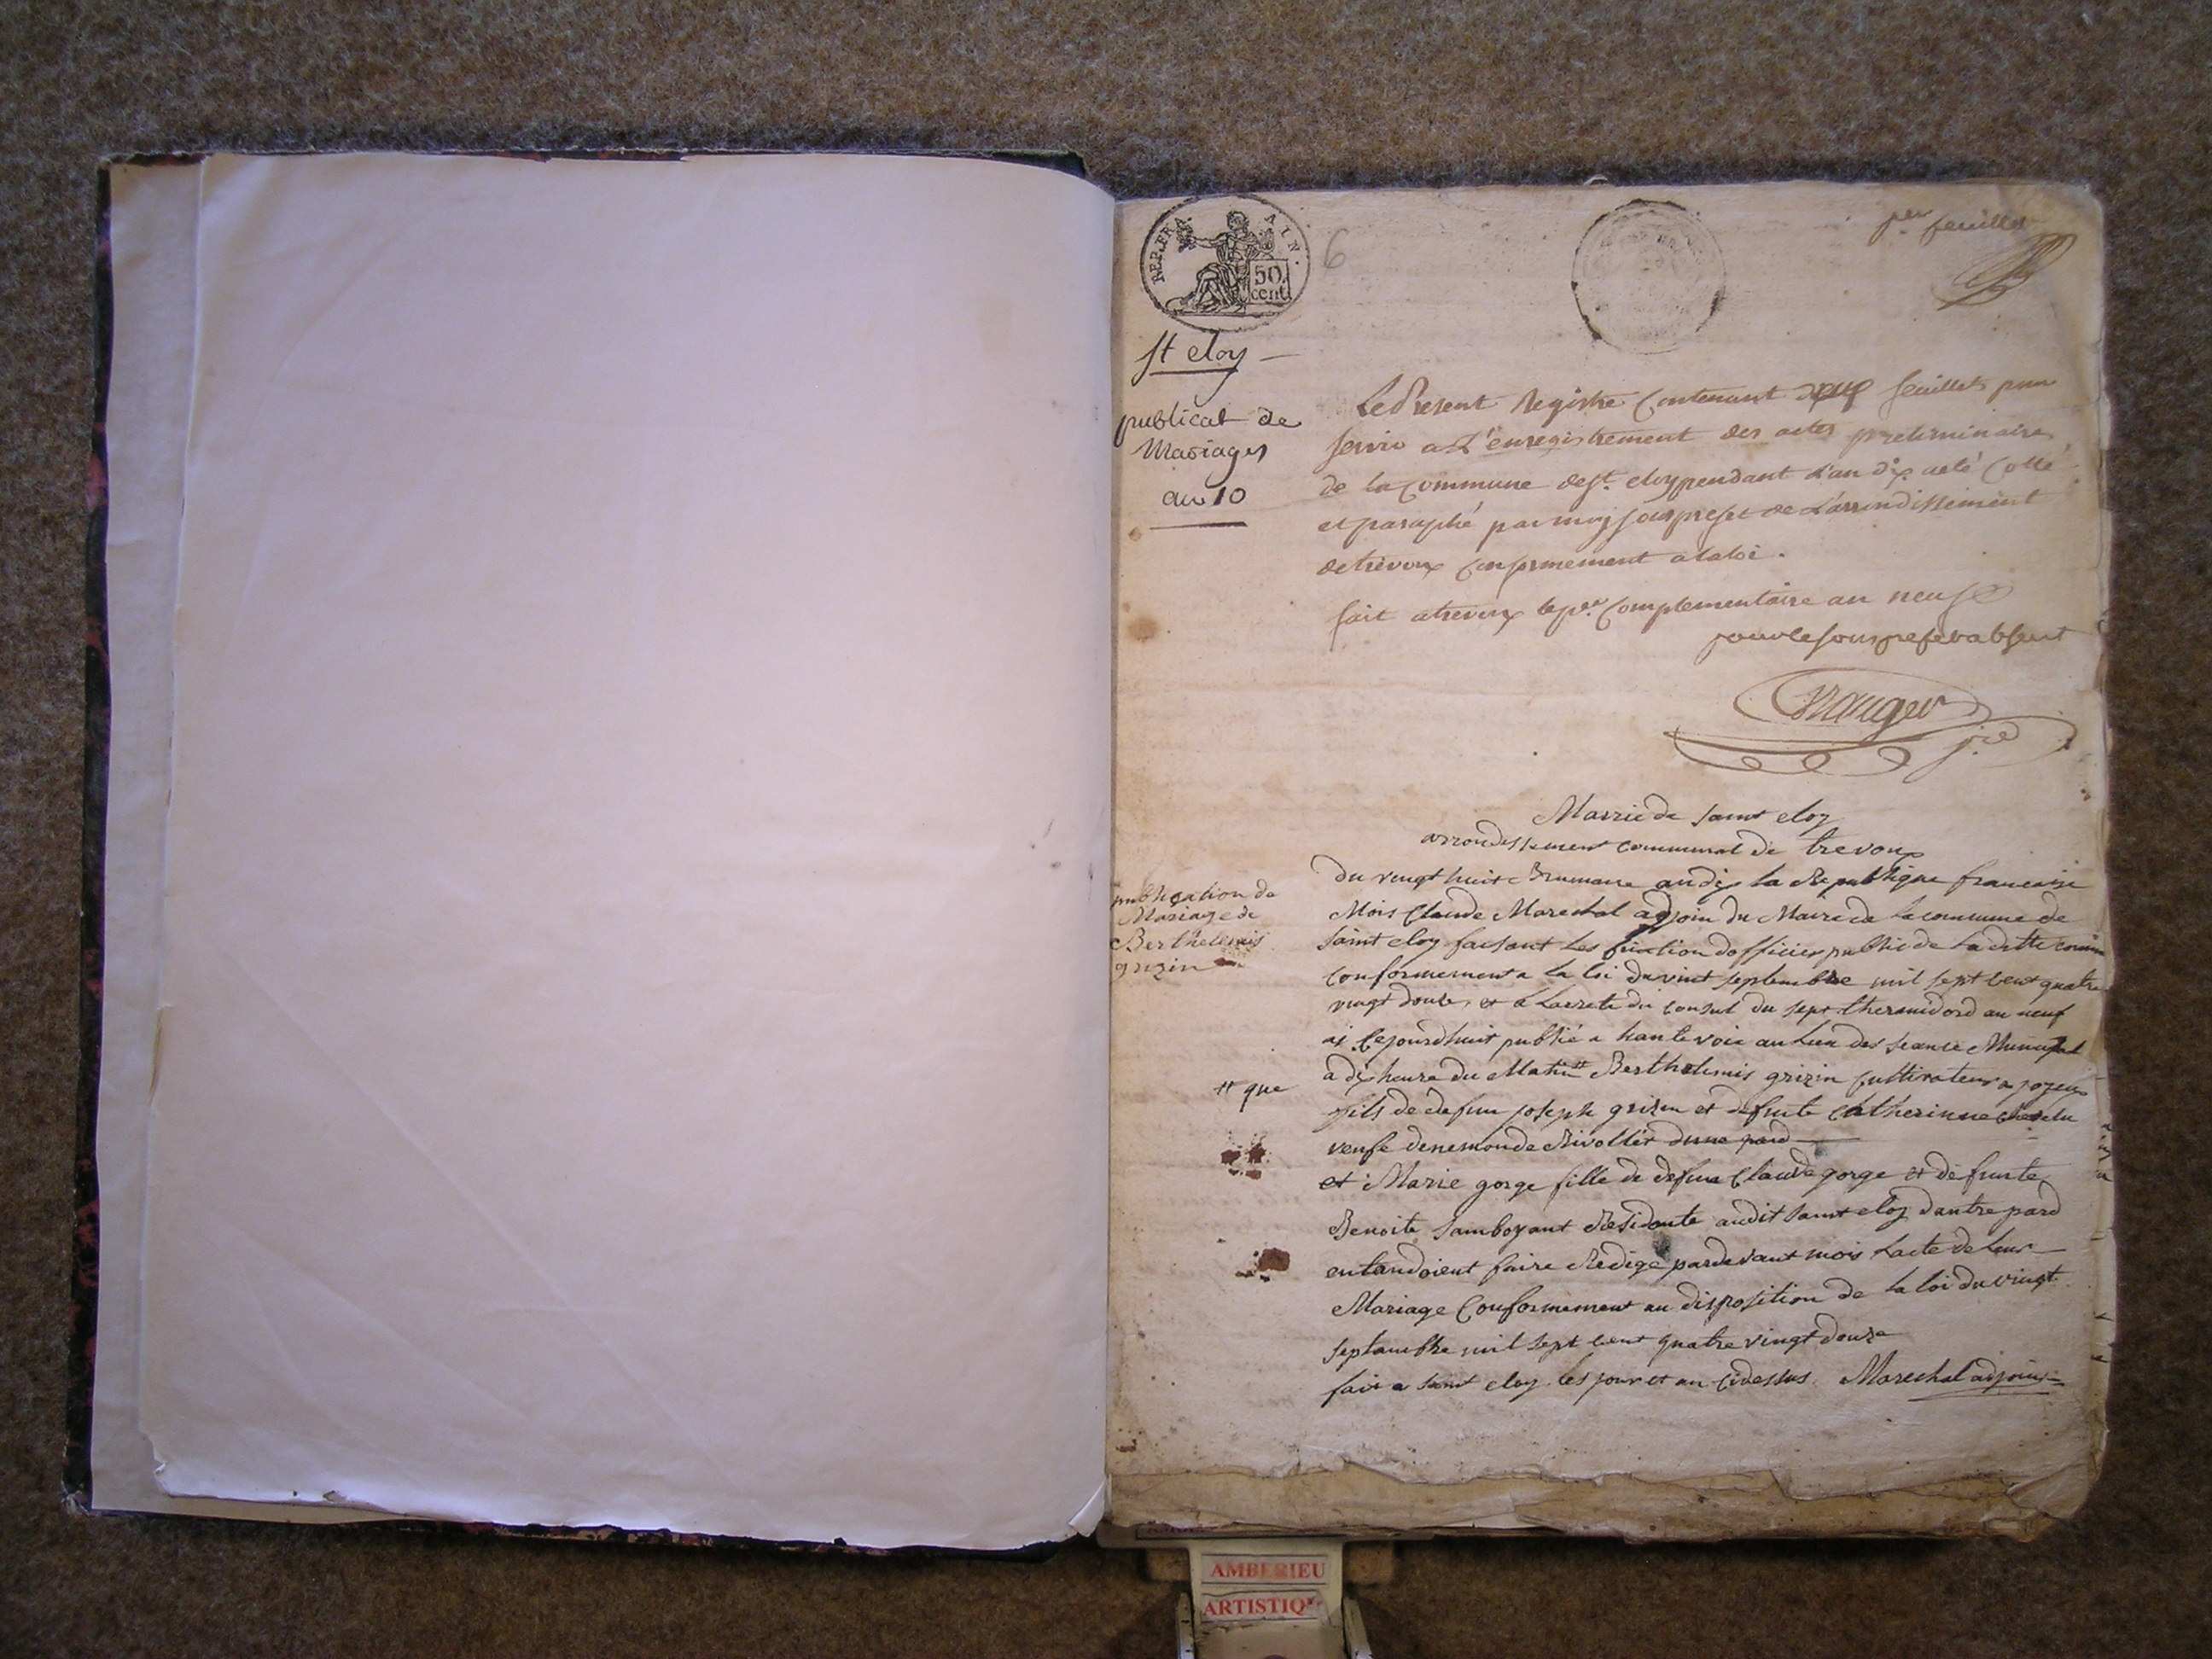 REP. FRA. AIN.
50 cent
6
per feuillet
St eloy
publicat de
Mariages
an 10
Le Present Registre Contenant feuillets pour
servir a L'enregistrement des actes preliminaires
de la Commune de st. eloy pendant L'an dix a eté Cotté
et paraphé par moy sous prefet de L'arrondissement
de trevoux Conformement a la loi.
fait a trevoux le per. Complementaire an neuf
pour le sous prefet absent
Mairie de saint eloy
arrondissement communal de trevoux
publication de
Mariage de
Berthelemis
grizin
du vingt huit Brumaire an dix la Republique francaise
Mois Claude Marechal adjoin du Maire de la commune de
saint eloy faisant les fonction dofficier public de la ditte
conformement a la loi du vint septembre mil sept cent quatre
vingt douse, et a Larreté du consul du sept thermidord an neuf
ai Cejourdhuit publié a haute voix au Lieu des seance Municipal
a dix heure du Matin # Berthelemis grizin Cultivateur a joyeux
# que
fils de defun joseph grizin et defunte Catherinne
veufe denemonde Rivollier dune pard
et Marie gorge fille de defun Claude gorge et defunte
Benoite Jamboyant Residente audit saint eloy dautre pard
entandoient faire Redige pardevant mois Lacte de Leur
Mariage Conformement au disposition de la loi du vingt
septambre mil sept cent quatre vingt douze
fait a saint eloy les jour et an cidessus. Marechal adjoint
AMBERIEU
ARTISTIQ